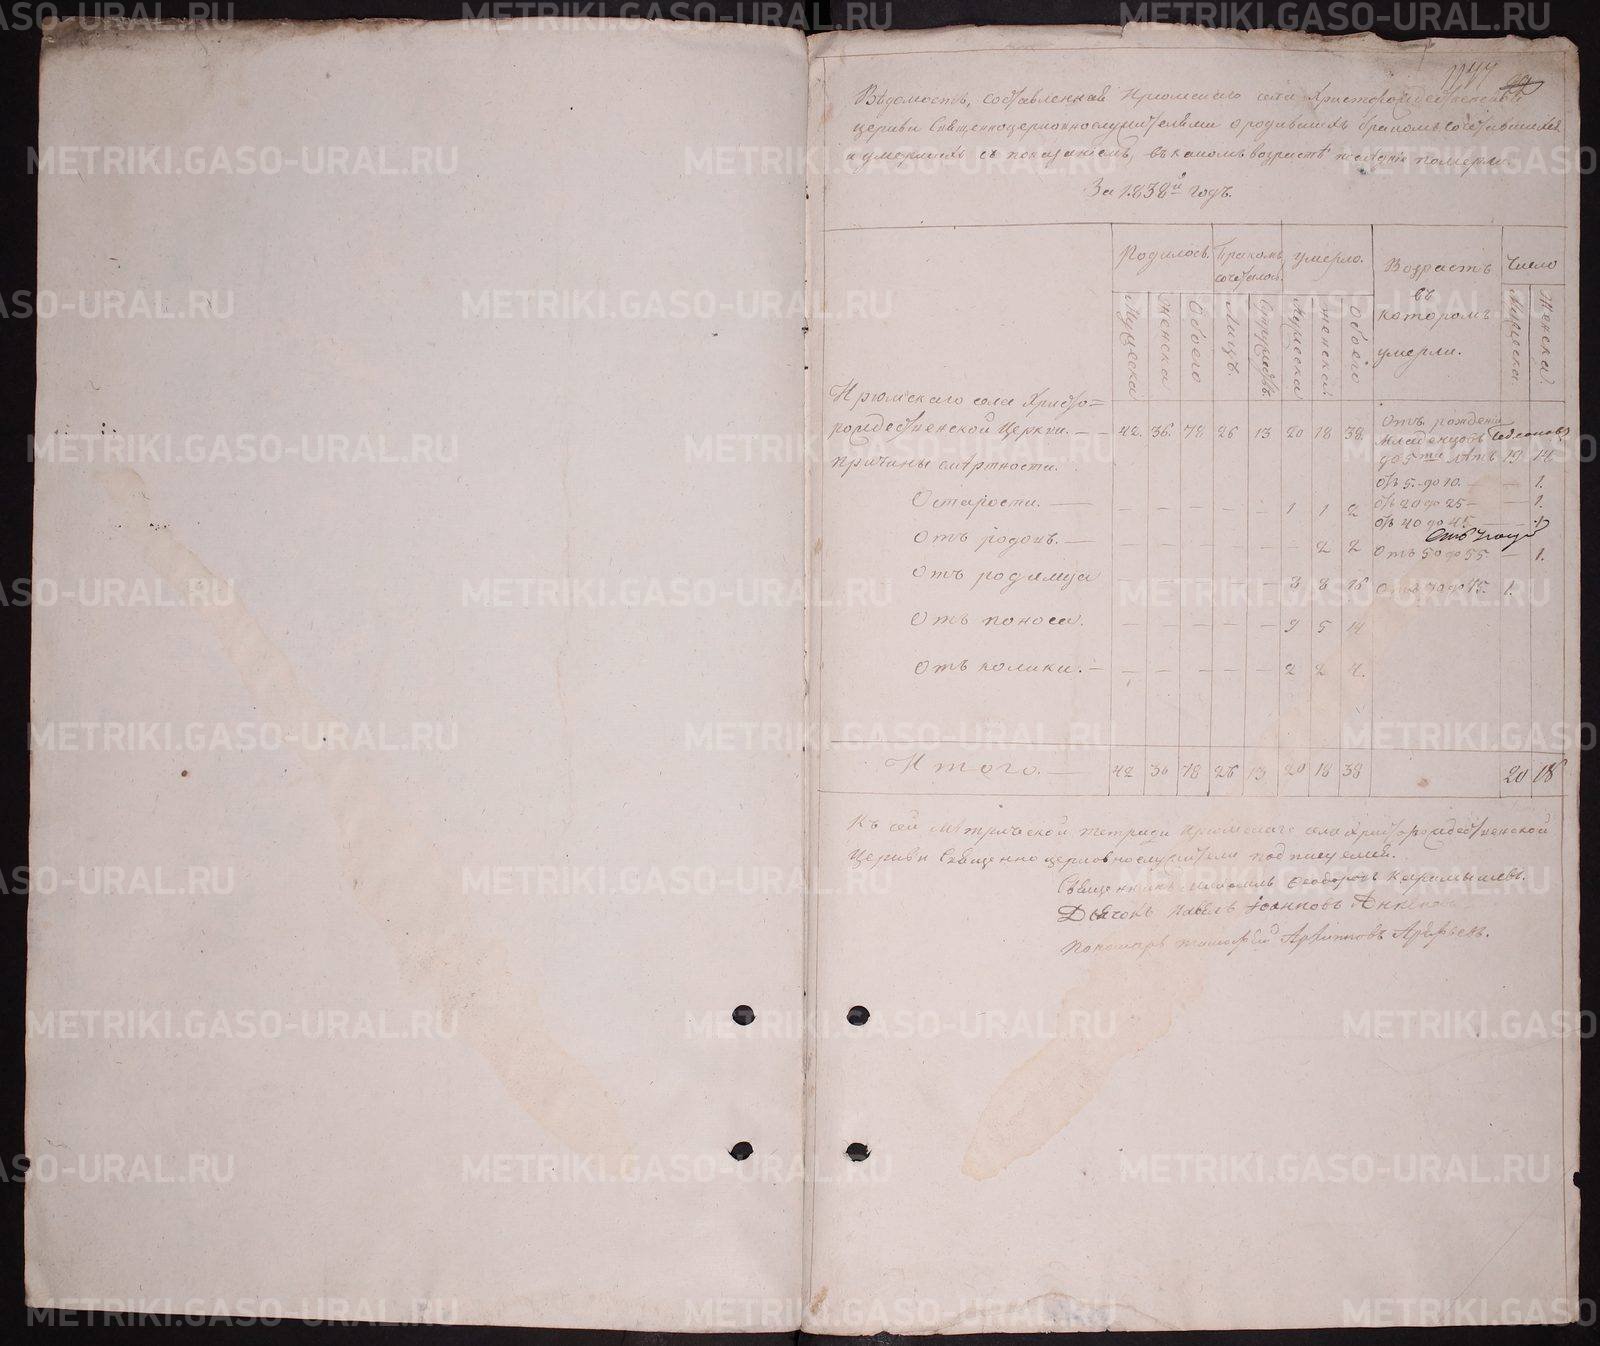 1147
Вѣдомость, составленная Ирюмскаго села Христорождественской
церкви Священноцерковнослужителями о родившихъ бракомъ сочетавшихся
и умершихъ съ показаніемъ, въ какомъ возрастѣ последніе померли.
За 1838й годъ.
Родилось. Бракомъ сочеталось. умерло. Возрастъ въ которомъ умерли. Число
Мужеска Женска Обоего Лицъ. Супружествъ. Мужеска женска. Обоего Мужеска Женска.
Ирюмскаго села Христо=
рождественской Церкви. — 42. 36. 78 26 13 20 18 38.
Отъ рожденія
младенцовъ
до 5ти лѣтъ 19. 14
Причины смертности.
отъ 5. до 10. — — 1.
От старости. — — — — — — 1 1 2
отъ 20 до 25 — — 1.
отъ 40 до 45. — — 1
Отъ родовъ. — — — — — — 2 2
Отъ 50 до 55 — 1.
Отъ родимца — — — — — 8 8 16
Отъ 70 до 75. 1.
Отъ поноса. — — — — — 9 5 14
Отъ колики. — — — — — — 2 2 4.
Итого. — 42 36 78 26 13 20 18 38 20 18
Къ сей метрической тетради Ирюмскаго села Христорождественской
Церкви Священноцерковнослужители подписуемся.
Священникъ Михаилъ Ѳеодоровъ Карамышевъ.
Дьячокъ Павелъ Іоанновъ
Пономарь Тимофей Архиповъ
METRIKI.GASO-URAL.RU